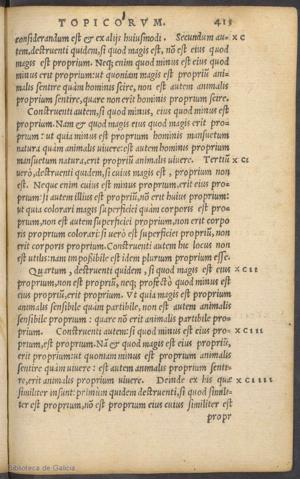 TOPICORVM. 413
considerandum est & ex alijs huiusmodi. Secundum au- X C
tem, destruenti quidem, si quod magis est, nō est eius quod
magis est proprium. Neq; enim quod minus est eius quod
minus erit proprium: ut quoniam magis est propriū ani-
malis sentire quàm hominis scire, non est autem animalis
proprium sentire, quare non erit hominis proprium scire.
Construenti autem, si quod minus, eius quod minus est
proprium. Nam & quod magis eius quod magis erit pro-
prium: ut quia minus est proprium hominis mansuetum
natura quàm animalis uiuere: est autem hominis proprium
mansuetum natura, erit propriū animalis uiuere. Tertiū X CI
uerò, destruenti quidem, si cuius magis est, proprium non
est. Neque enim cuius est minus proprium, erit eius pro-
prium: si autem illius est propriū, nō erit huius proprium:
ut quia colorari magis superficiei quàm corporis est pro-
prium, non est autem superficiei proprium, non erit corpo
ris proprium colorari: si uerò est superficiei propriū, non
erit corporis proprium. Construenti autem hic locus non
est utilis: nam impoßibile est idem plurium proprium esse.
Quartum, destruenti quidem, si quod magis est eius X CII
proprium, non est propriū, neq; profectò quod minus est
eius propriū, erit proprium. Vt quia magis est proprium
animalis sensibile quàm partibile, non est autem animalis
sensibile proprium: quare nō erit animalis partibile pro-
prium. Construenti autem: si quod minus est eius pro- X CIII
prium, est proprium. Nā & quod magis est eius propriū,
erit proprium: ut quoniam minus est proprium animalis
sentire quàm uiuere: est autem animalis proprium senti-
re, erit animalis proprium uiuere. Deinde ex his quæ X CIIII
similiter insunt: primùm quidem destruenti, si quod simili-
ter est proprium, nō est proprium eius cuius similiter est
propr
Biblioteca de Galicia